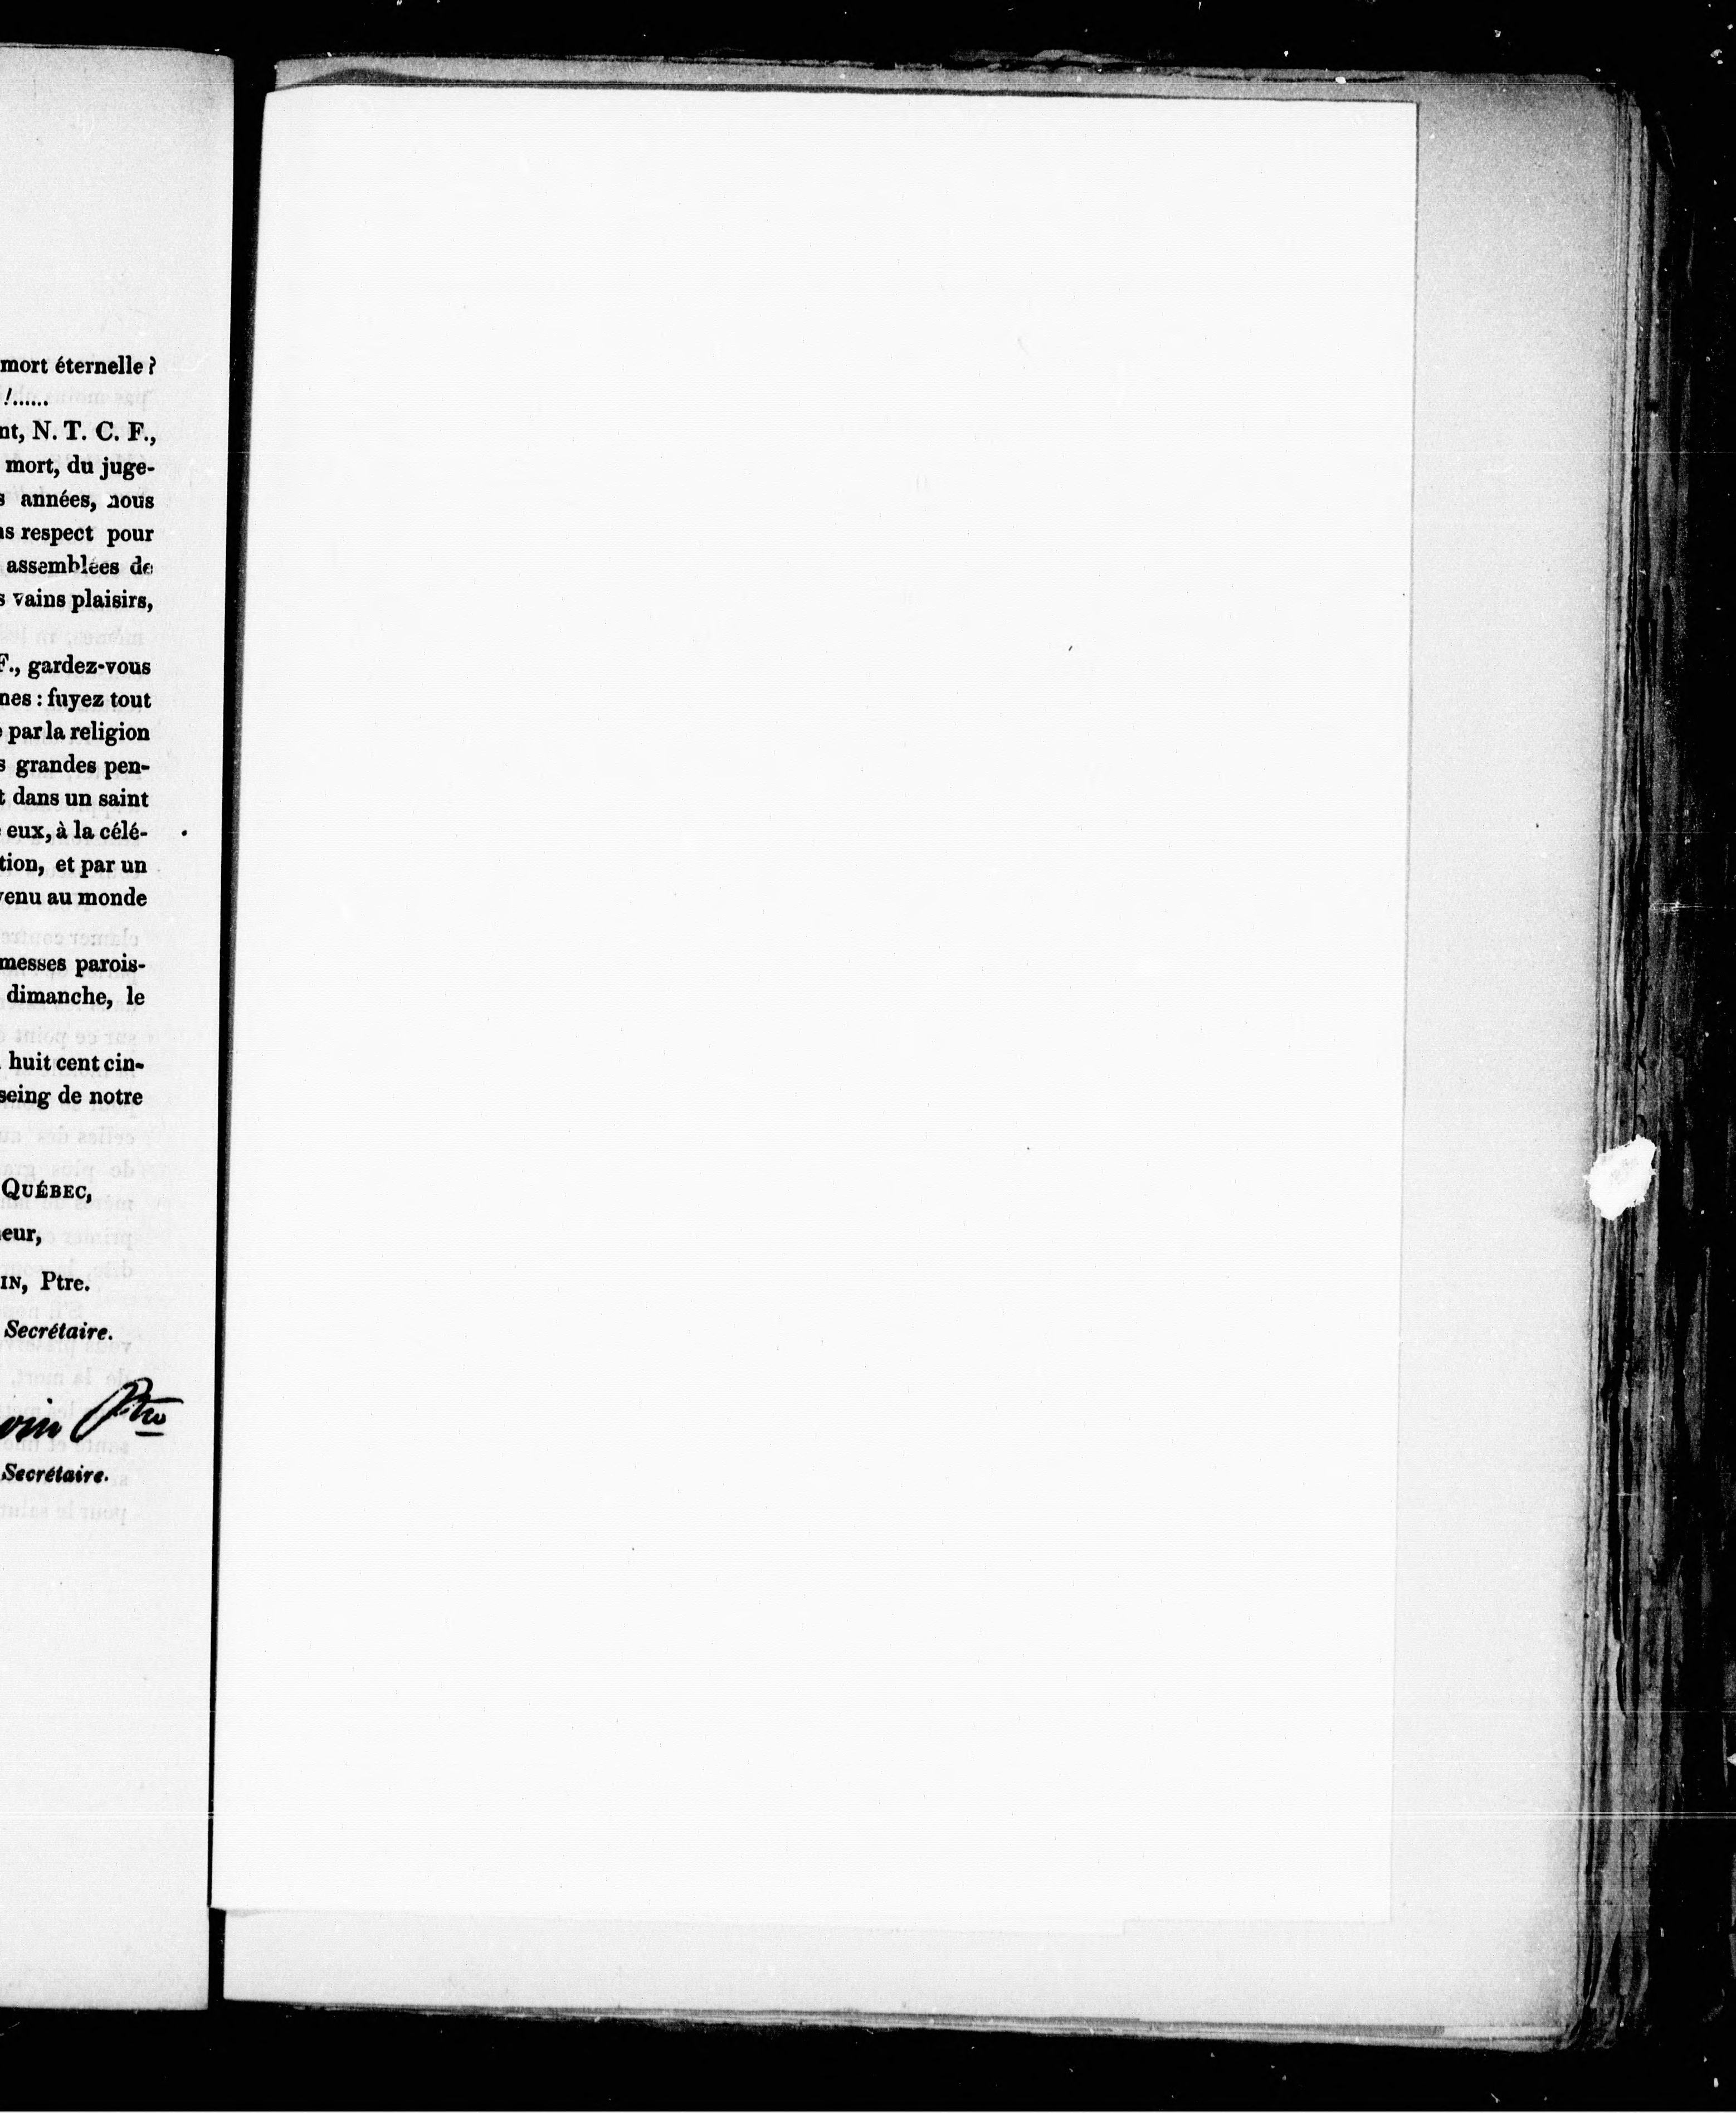 mort éternelle ?
!......
nt, N. T. C. F.,
mort, du juge-
s années, nous
ns respect pour
assemblées de
s vains plaisirs,
F., gardez-vous
nes : fuyez tout
par la religion
s grandes pen-
t dans un saint
eux, à la célé-
tion, et par un
venu au monde
messes parois-
dimanche, le
huit cent cin-
seing de notre
QUÉBEC,
eur,
IN, Ptre.
Secrétaire.
vin Ptre
Secrétaire.